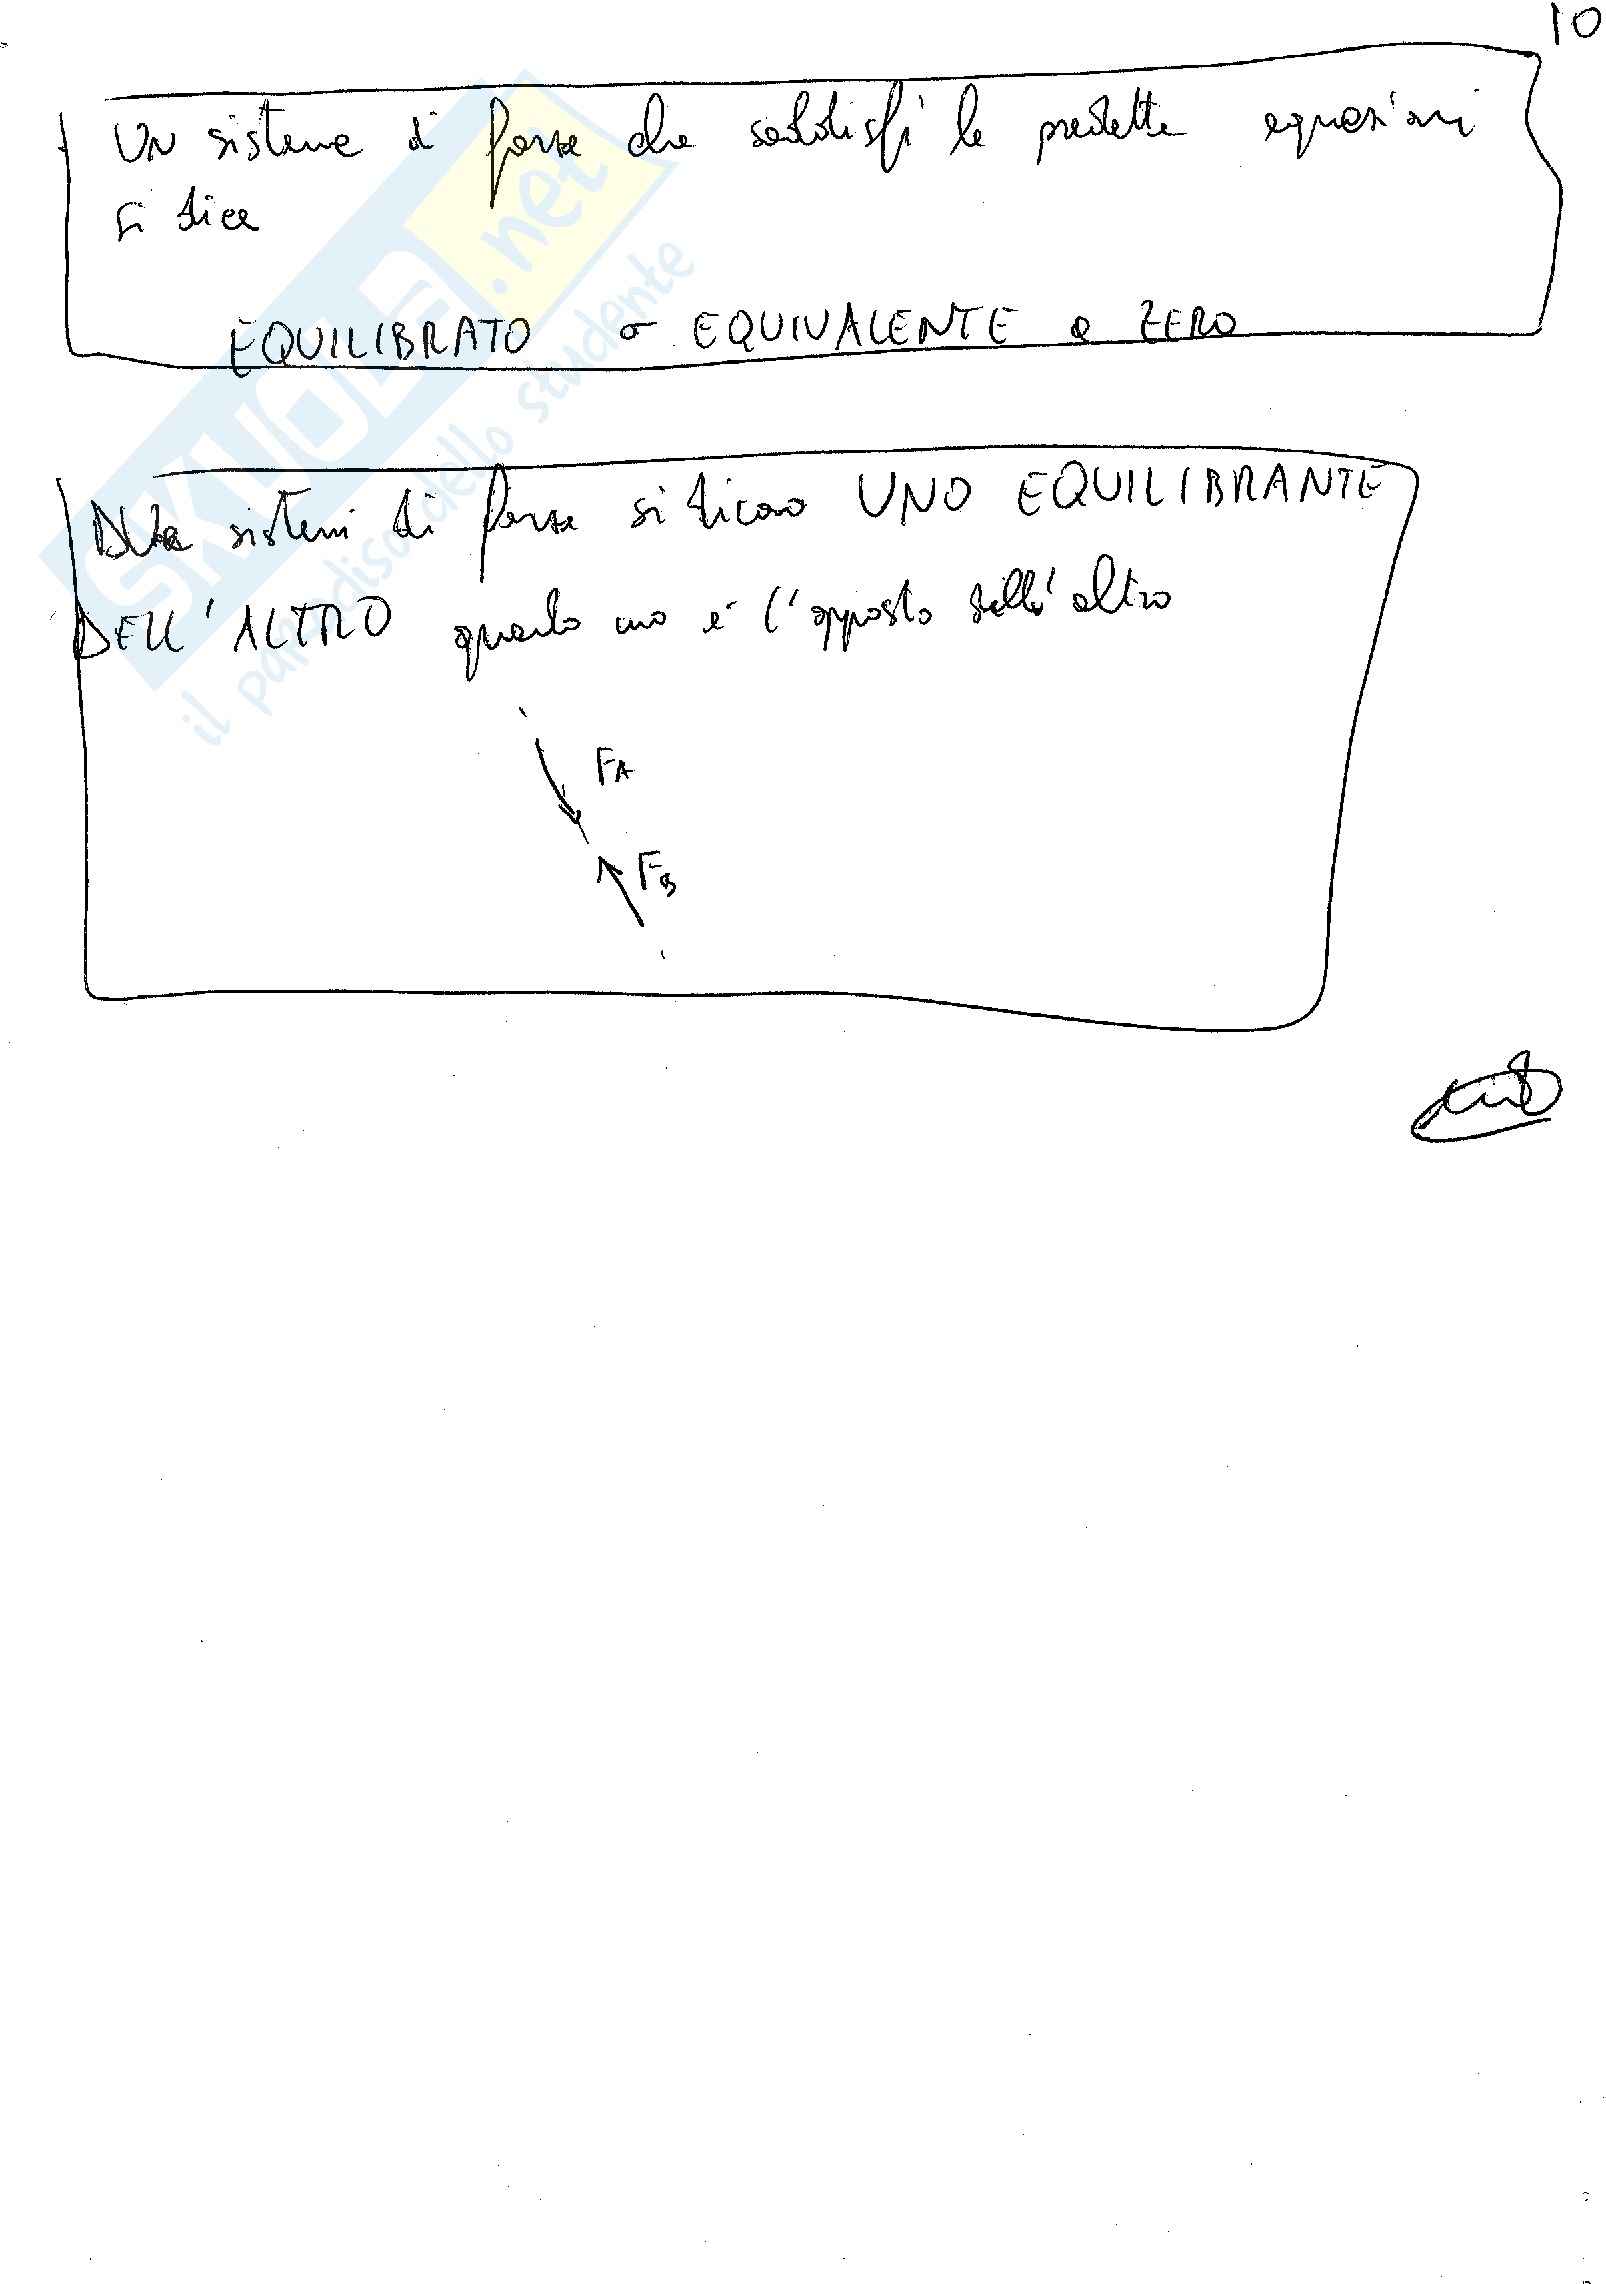 10
Un sistema di forze che soddisfi le predette equazioni
si dice
EQUILIBRATO o EQUIVALENTE a ZERO
Due sistemi di forze si dicono UNO EQUILIBRANTE
DELL'ALTRO quando uno è l'opposto dell'altro
FA
FB
SKUOLA.net
il paradiso dello studente